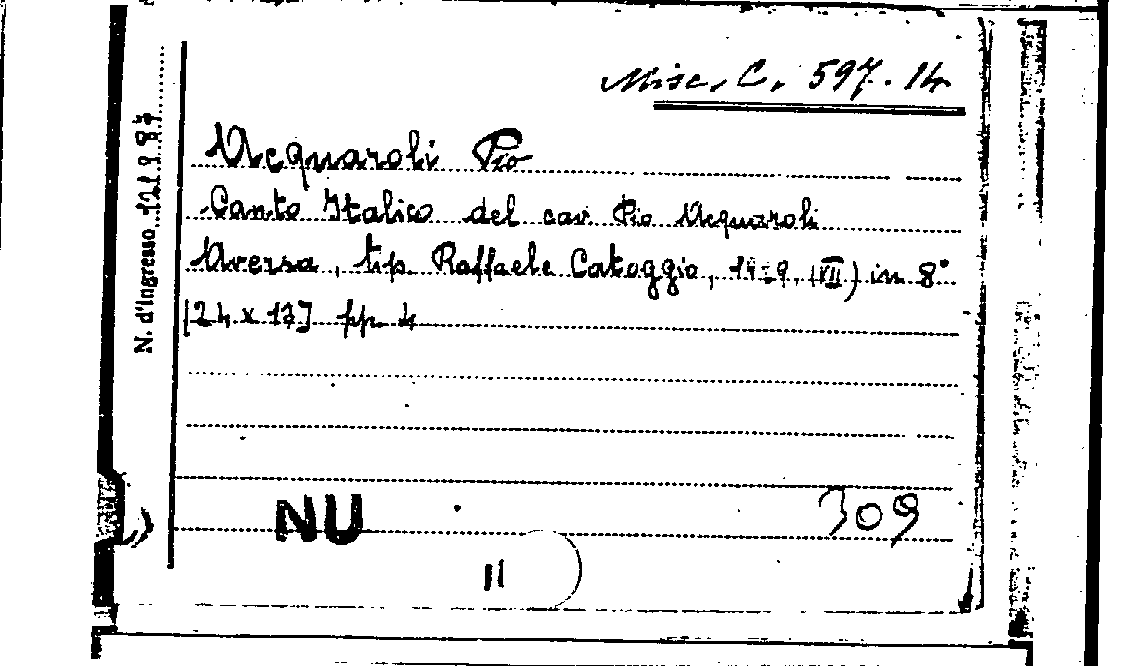 Misc. C. 597.14
Acquaroli Pio
Canto Italico del cav. Pio Acquaroli
Aversa, tip. Raffaele Catoggio, (VII) in 8°
[24 x 17] pp. 4
N. d'Ingresso
NU
309
11